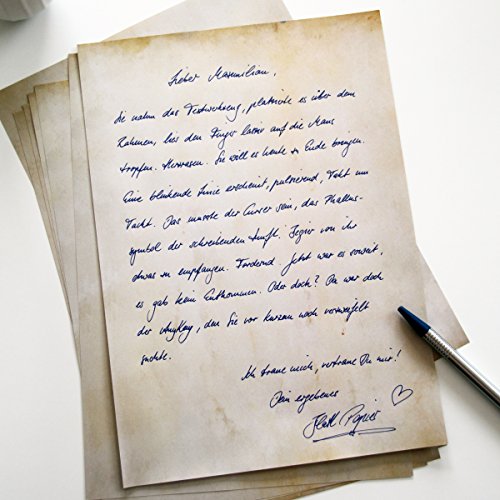 Lieber Maximilian,
sie nahm das Textwerkzeug, platzierte es über dem
Rahmen, lies den Finger lasziv auf die Maus
tropfen. Sie will es heute zu Ende bringen.
Eine blinkende Linie erscheint, pulsierend, Takt um
Takt. Das musste der Curser sein, das Phallus-
symbol der schreibenden Zunft. Begier von ihr
etwas zu empfangen. Fordernd. Jetzt war es soweit,
es gab kein Entkommen. Oder doch? Da war doch
der Anfang, den Sie vor kurzem noch verzweifelt
suchte.
Ich traue mich, vertraue Du mir!
Dein ergebenes
Blatt Papier